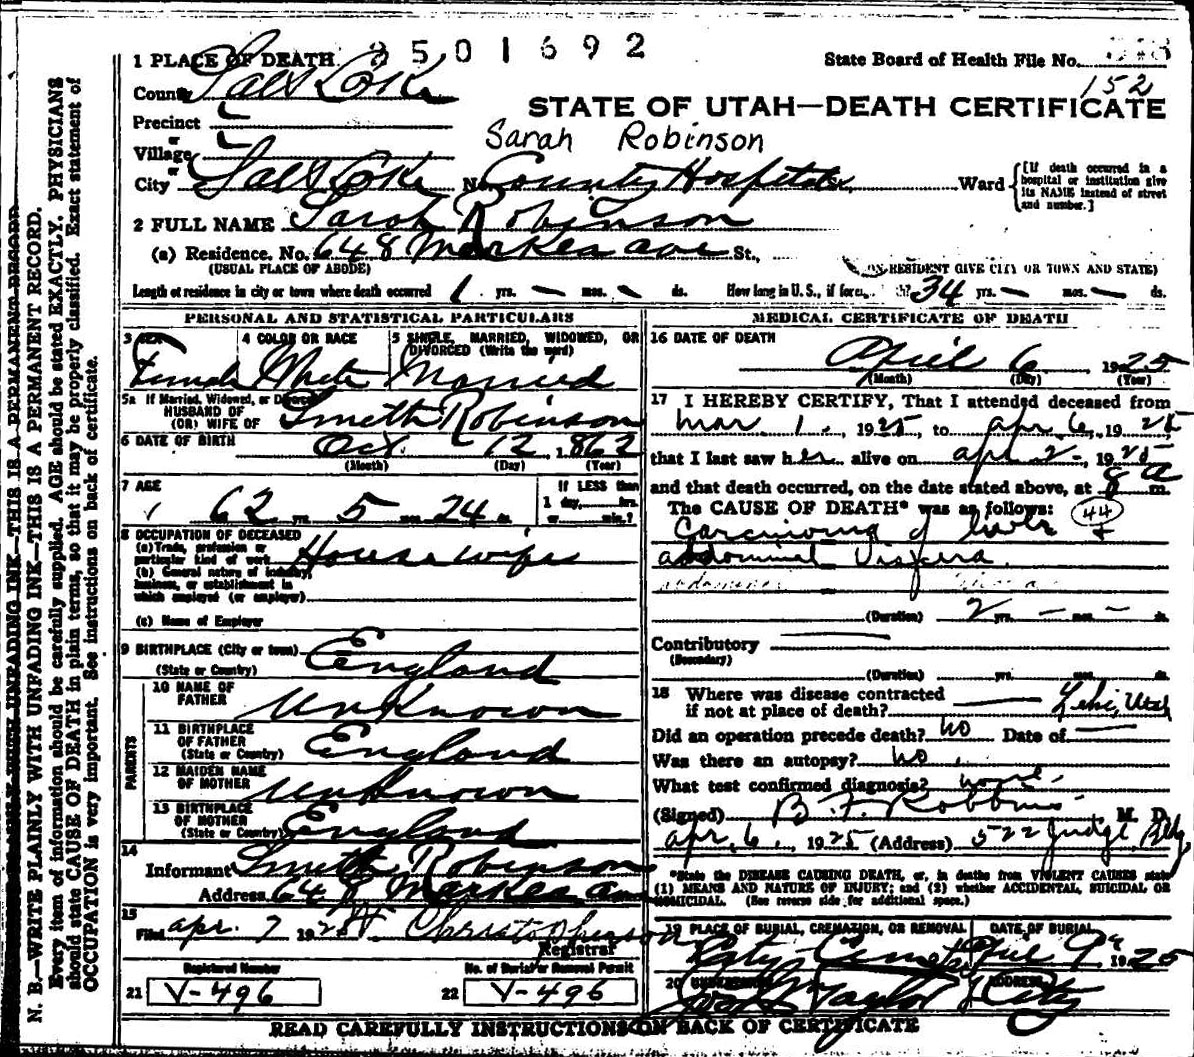 2501692
1 PLACE OF DEATH
State Board of Health File No.
152
County Salt Lake
STATE OF UTAH—DEATH CERTIFICATE
Precinct
or
Village
Sarah Robinson
or
City Salt Lake No. County Hospital, Ward
[If death occurred in a hospital or institution give its NAME instead of street and number.]
2 FULL NAME Sarah Robinson
(a) Residence. No. 648 Markea ave St.,
(USUAL PLACE OF ABODE)
RESIDENT GIVE CITY OR TOWN AND STATE)
Length of residence in city or town where death occurred 1 yrs. — mos. — ds.
How long in U.S., if of 34 yrs. — mos. — ds.
PERSONAL AND STATISTICAL PARTICULARS
3 SEX
Female
4 COLOR OR RACE
White
5 SINGLE, MARRIED, WIDOWED, OR DIVORCED (Write the word)
Married
5a If Married, Widowed, or Divorced
HUSBAND OF
(OR) WIFE OF Smith Robinson
6 DATE OF BIRTH Oct. 12, 1862
(Month) (Day) (Year)
7 AGE
62 yrs. 5 mos. 24 ds.
If LESS than
1 day, hrs.
or min.?
8 OCCUPATION OF DECEASED
(a) Trade, profession or
particular kind of work Housewife
(b) General nature of industry,
business, or establishment in
which employed (or employer)
(c) Name of Employer
9 BIRTHPLACE (City or town)
(State or Country) England
PARENTS
10 NAME OF
FATHER Unknown
11 BIRTHPLACE
OF FATHER
(State or Country) England
12 MAIDEN NAME
OF MOTHER Unknown
13 BIRTHPLACE
OF MOTHER
(State or Country) England
14
Informant Smith Robinson
Address 648 Markea ave
15
Filed apr. 7 192 Christopherson
Registrar
Registered Number
21 V-496
No. of Burial or Removal Permit
22 V-496
MEDICAL CERTIFICATE OF DEATH
16 DATE OF DEATH
April 6 1925
(Month) (Day) (Year)
17 I HEREBY CERTIFY, That I attended deceased from
Mar 1, 1925, to apr 6, 1925,
that I last saw her alive on apr 2-, 1925
and that death occurred, on the date stated above, at 8 a m.
The CAUSE OF DEATH* was as follows: 44
Carcinoma of liver +
abdominal Viscera
(Duration) 2 yrs. — mos. — ds.
Contributory
(Secondary)
(Duration) yrs. mos. ds.
18 Where was disease contracted
if not at place of death? Lehi, Utah
Did an operation precede death? No Date of —
Was there an autopsy? No.
What test confirmed diagnosis? none-
(Signed) B. F. Robbins M. D.
apr. 6, 1925 (Address) 522 Judge Bldg
*State the DISEASE CAUSING DEATH, or, in deaths from VIOLENT CAUSES state
(1) MEANS AND NATURE OF INJURY; and (2) whether ACCIDENTAL, SUICIDAL OR
HOMICIDAL. (See reverse side for additional space.)
19 PLACE OF BURIAL, CREMATION, OR REMOVAL
City Cemetery
DATE OF BURIAL
April 9 1925
20 UNDERTAKER
Taylor
ADDRESS
City
READ CAREFULLY INSTRUCTIONS ON BACK OF CERTIFICATE
N. B.—WRITE PLAINLY WITH UNFADING INK—THIS IS A PERMANENT RECORD.
Every item of information should be carefully supplied. AGE should be stated EXACTLY. PHYSICIANS
should state CAUSE OF DEATH in plain terms, so that it may be properly classified. Exact statement of
OCCUPATION is very important. See instructions on back of certificate.